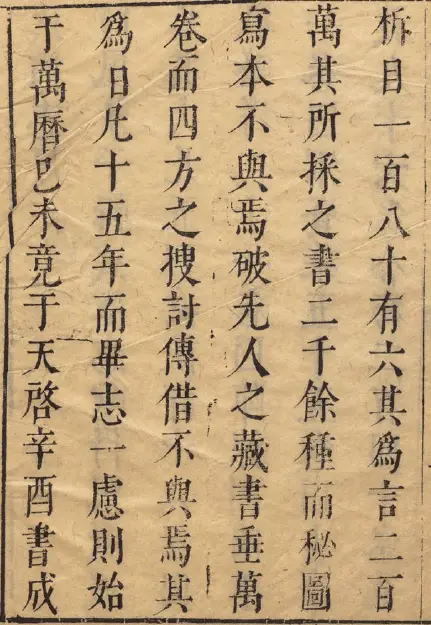 析目一百八十有六其為言二百
萬其所採之書二千餘種而秘圖
寫本不與焉破先人之藏書垂萬
卷而四方之搜討傳借不與焉其
為日凡十五年而畢志一慮則始
于萬曆己未竟于天啓辛酉書成